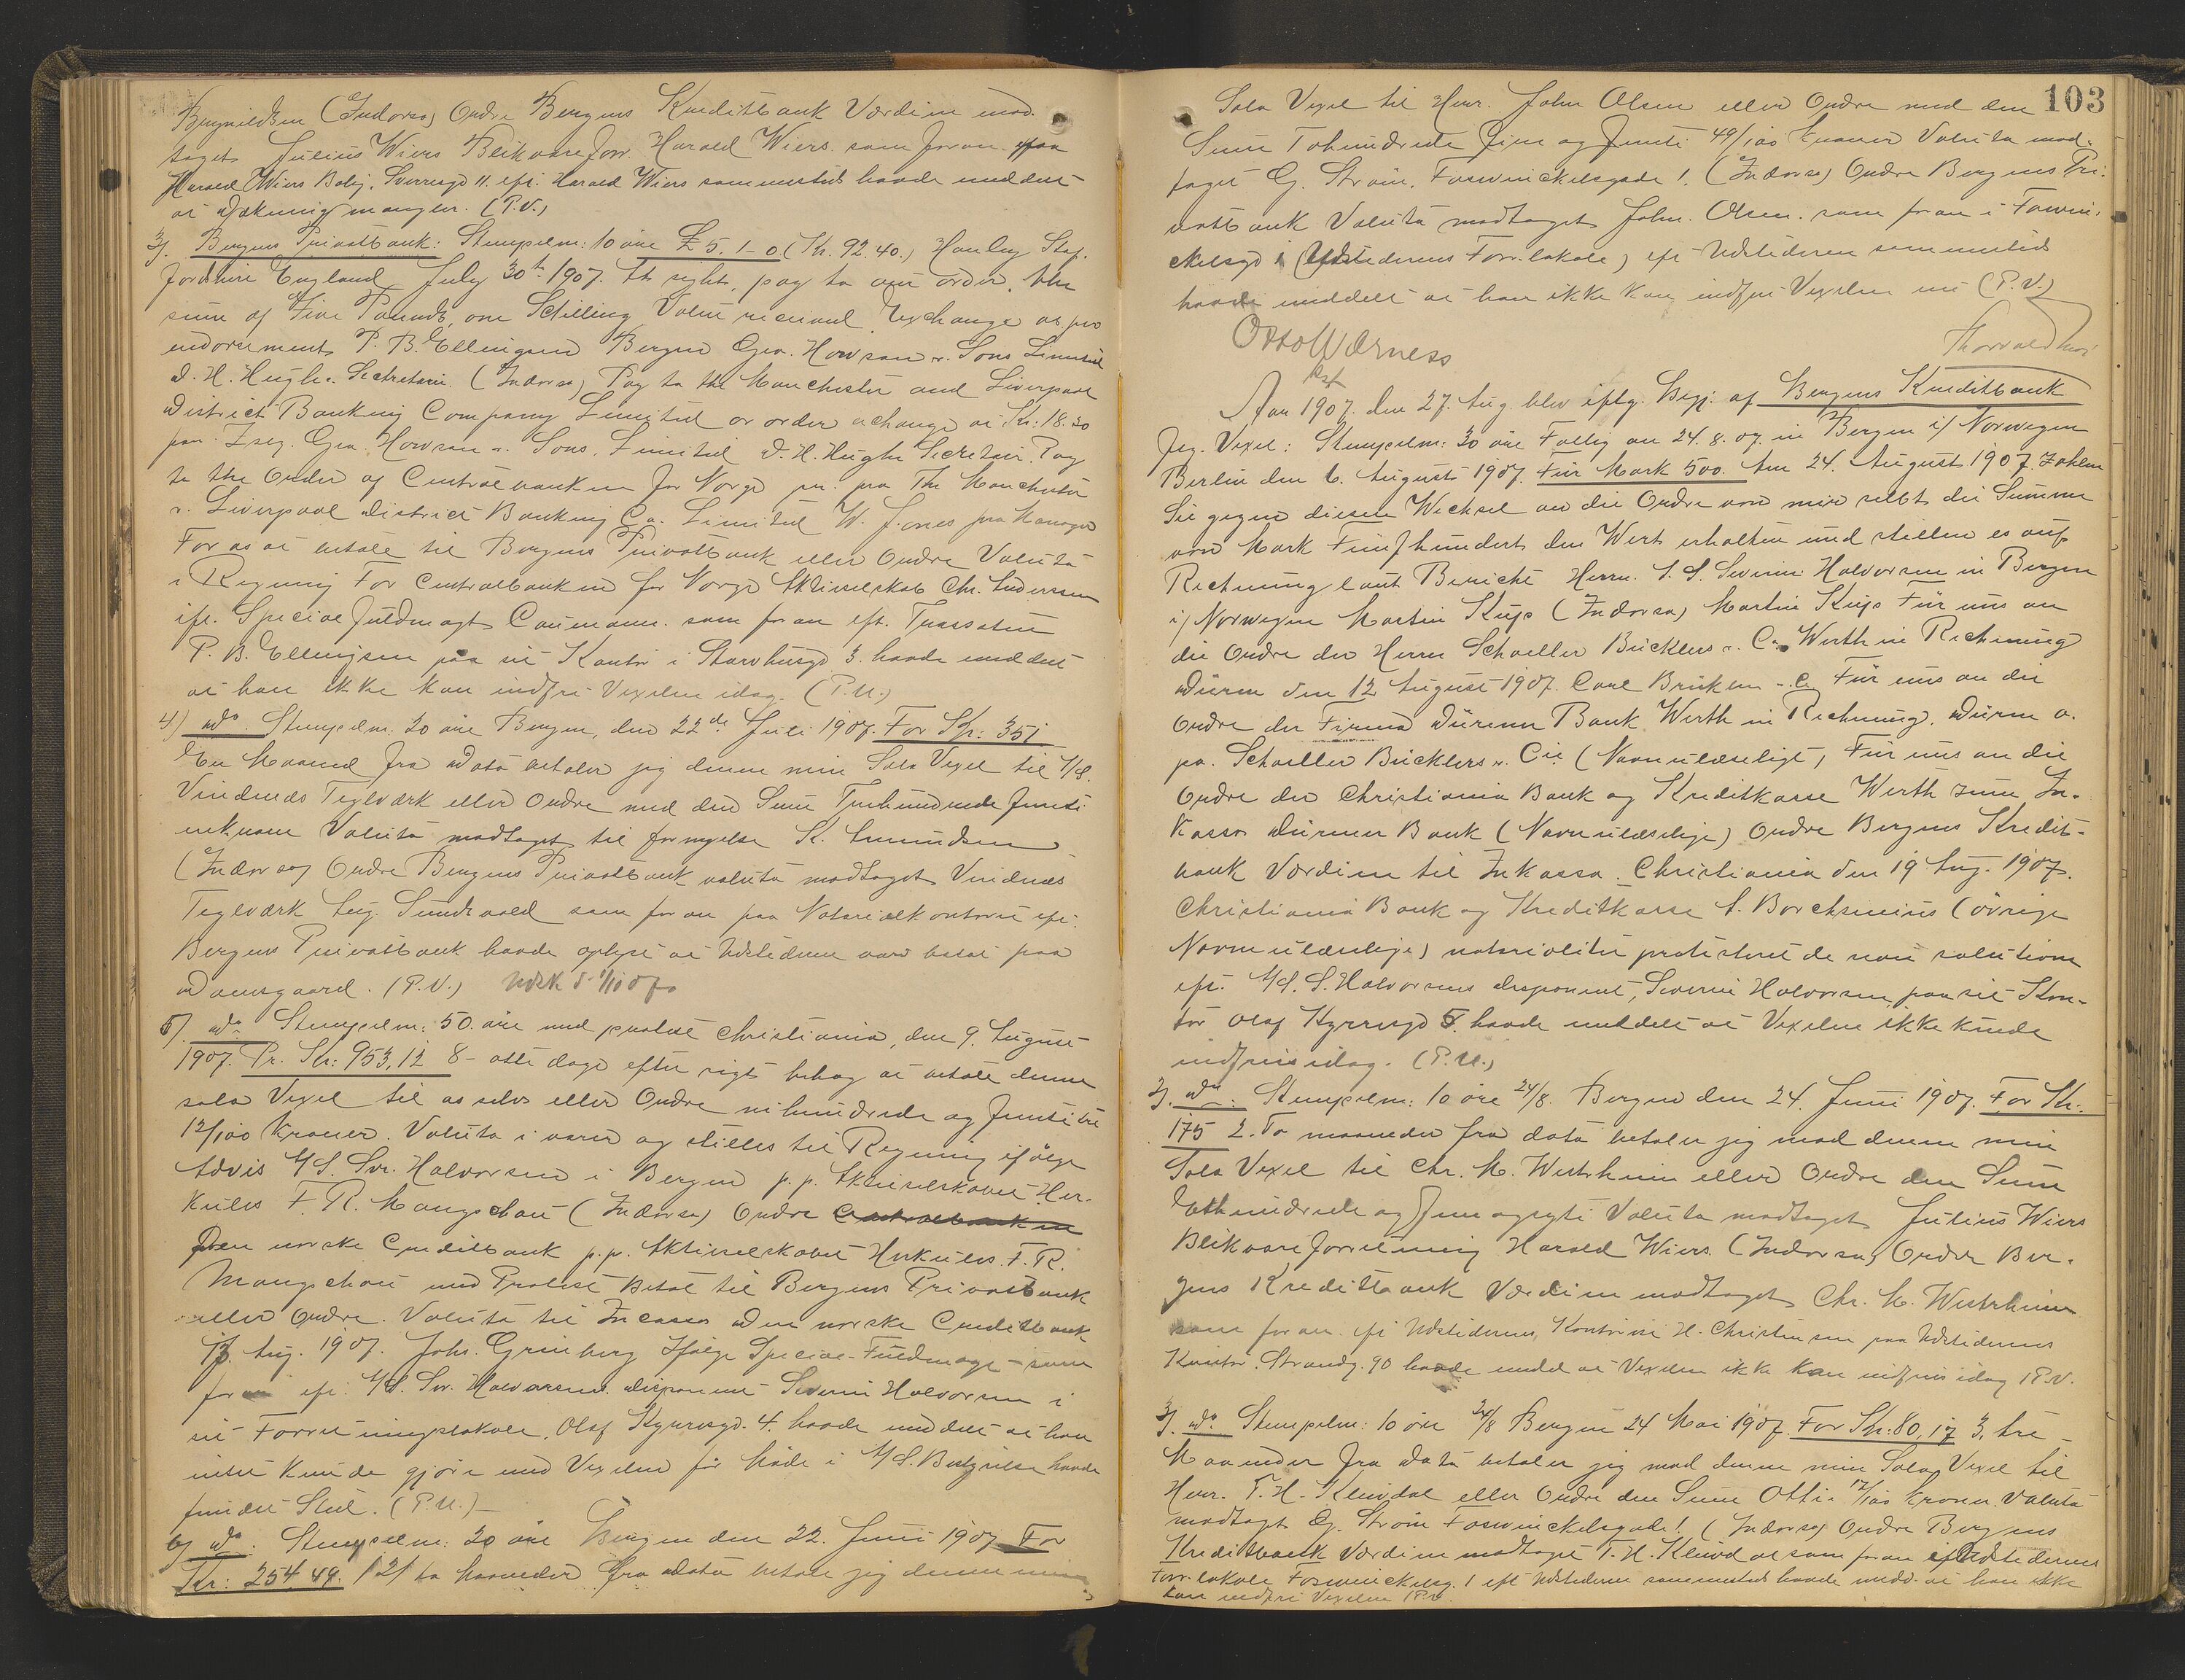 Brynildsen (Indorso) Ordre Bergens Kreditbank Værdien mod-
taget Julius Wiers Blikvareforr. Harald Wiers. som foran paa
Harald Wiers Bolig, Sverresgd 11. eft. Harald Wiers sammesteds havde meddelt
at Dækning mangler. (P.V.)
3). Bergens Privatbank: Stempelm: 10 øre £ 5. 1- 0 (Kr. 92.40.) Hanley Staf-
fordshire England July 30th 1907. At sight, pay to our order, the
sum of Five Pounds, one Schilling Value received. Exchange as per
endorsement P. B. Ellingsen Bergen Geo. Howson & Sons Limited
D. H. Hughes Secretair. (Indorso) Pay to the Manchester and Liverpool
District Banking Company Limited or order exchange at Kr: 18.30
for Geo. Howson & Sons. Limited D. H. Hughes Secretair. Pay
to the Order of Centralbanken for Norge pr. pro The Manchester
& Liverpool District Banking Co. Limited W. Jones pro Manager
For os at betale til Bergens Privatbank eller Ordre Valuta
i Regning For Centralbanken for Norge Aktieselskab Chr. Andersen
ifl. Special fuldmagt Caumann. som foran eft. Trassaten
P. B. Ellingsen paa sit Kontor i Starvhusgd 3. havde meddelt
at han ikke kan indfri Vexelen idag. (P.U.)
4) do. Stempelm. 20 øre Bergen, den 22de Juli 1907. For Kr: 351
En Maaned fra Dato betaler jeg denne min Sola Vexel til A/S.
Vindenæs Teglværk eller Ordre med den Sum Trehundrede femti
en krone Valuta modtaget til fornyelse K. Amundsen
(Indorso) Ordre Bergens Privatbank valuta modtaget Vindnæs
Teglværk Aug. Sundvold som foran paa Notarialkontoret eft.
Bergens Privatbank havde oplyst at Udstederen var bosat paa
Damsgaard. (P.V.) Udsk d. 1/10 07
5) do Stempelm: 50. øre med protest Christiania, den 9. August
1907. Pr. Kr: 953,12 8- otte dage efter sigt behag at betale denne
sola Vexel til os selv eller Ordre nihundrede og femti tre
12/100 Kroner. Valuta i varer og stilles til Regning ifølge
Advis A/S. Svr. Halvorsen i Bergen p.p. Aktieselskabet Her-
kules F. R. Mangschou (Indorso) Ordre Centralbanken
Den norske Creditbank p.p. Aktieselskabet Herkules. F. R.
Mangschou med Protest Betal til Bergens Privatbank
eller Ordre. Valuta til Incasso Den norske Creditbank
13. Aug. 1907. Johs. Grinberg Ifølge Special-Fuldmagt - som
foran eft. A/S. Svr. Halvorsens disponent Severin Halvorsen i
sit Forretningslokale. Olaf Kyrresgd. 4. havde meddelt at han
intet kunde gjøre med Vexelen før Møde i A/S. Bestyrelse havde
fundet Sted. (P.U.)
6) do: Stempelm: 20 øre Bergen den 22. Juni 1907 For
Kr: 254 49. (2) to Maaneder fra dato betaler jeg denne min
103
Sola Vexel til Herr. John Olsen eller Ordre med den
Sum Tohundrede fire og femti 49/100 Kroner Valuta mod-
taget G. Strøm. Foswinckelsgade 1. (Indorso) Ordre Bergens Pri-
vatbank Valuta modtaget John. Olsen. som foran i Foswin-
ckelsgd 1 (Udstederens Forr. lokale) eft Udstederen sammesteds
havde meddelt at han ikke kan indfri Vexelen nu (P.V.)
Otto Wærness
Aar 1907. den 27. Aug. blev eftg. Begj: af Bergens Kreditbank
Jeg. Vexel: Stempelm: 30 øre Fällig am 24. 8. 07. in Bergen i/ Norwegen
Berlin den 6. August 1907. Für Mark 500. Am 24. August 1907. Zahlen
Sie gegen diesen Wechsel an die Ordre von mir selbst die Summe
von Mark Fünfhundert den Wert erhalten und stellen es auf
Rechnung laut Bericht Herrn. A. S. Severin Halvorsen in Bergen
i/ Norwegen Martin Kups (Indorso) Martin Kups Für uns an
die Ordre der Herrn Schoeller Bücklers & Co. Werth in Rechnung
Düren den 12 August 1907. Carl Brücklen & Co Für uns an die
Ordre der Firma Dürener Bank Werth in Rechnung. Düren a.
pa. Schoeller Bücklers & Cie (Navn ulæseligt) Für uns an die
Ordre der Christiania Bank og Kreditkasse Werth zum In-
kasso Dürener Bank (Navn ulæselige) Ordre Bergens Kredit-
bank Værdien til Inkasso. Christiania den 19 Aug. 1907.
Christiania Bank og Kreditkasse A. Borchsenius (øvrige
Navne ulæselige) notarialiter protesteret de non solutione
eft. A/S. S. Halvorsens disponent, Severin Halvorsen, paa sit Kon-
tor Olaf Kyrresgd 5. havde meddelt at Vexelen ikke kunde
indfries idag. (P.U.)
2). do: Stempelm: 10 øre 24/8. Bergen den 24. Juni 1907. For Kr:
175 2. To maaneder fra dato betaler jeg mod denne min
Sola Vexel til Chr. M. Westrheim eller Ordre den Sum
Ethundrede og fem og sytti Valuta modtaget Julius Wiers
Blikvareforretning Harald Wiers. (Indorso) Ordre Ber-
gens Kreditbank Værdien modtaget Chr. M. Westrheim
som foran eft Udstederens Kontorist H. Christensen paa Udstederens
Kontor. Strandg. 90 havde meddel at Vexelen ikke kan indfries idag (P.V.
3). do Stempelm: 10 øre 24/8 Bergen 24 Mai 1907. For Kr: 80,17 3, tre
Maaneder fra Dato betaler jeg mod denne min Sola Vexel til
Herr. T. H. Kleivdal eller Ordre den Sum Otti. 17/100 kroner. Valuta
modtaget G. Strøm Foswinckelsgade 1. (Indorso) Ordre Bergens
Kreditbank Værdien modtaget T. H. Kleivdal som foran i Udstederens
Forr. lokale Foswinckelsg. 1 eft Udstederen sammesteds havde medd. at han ikke
kan indfri Vexelen (P.V.